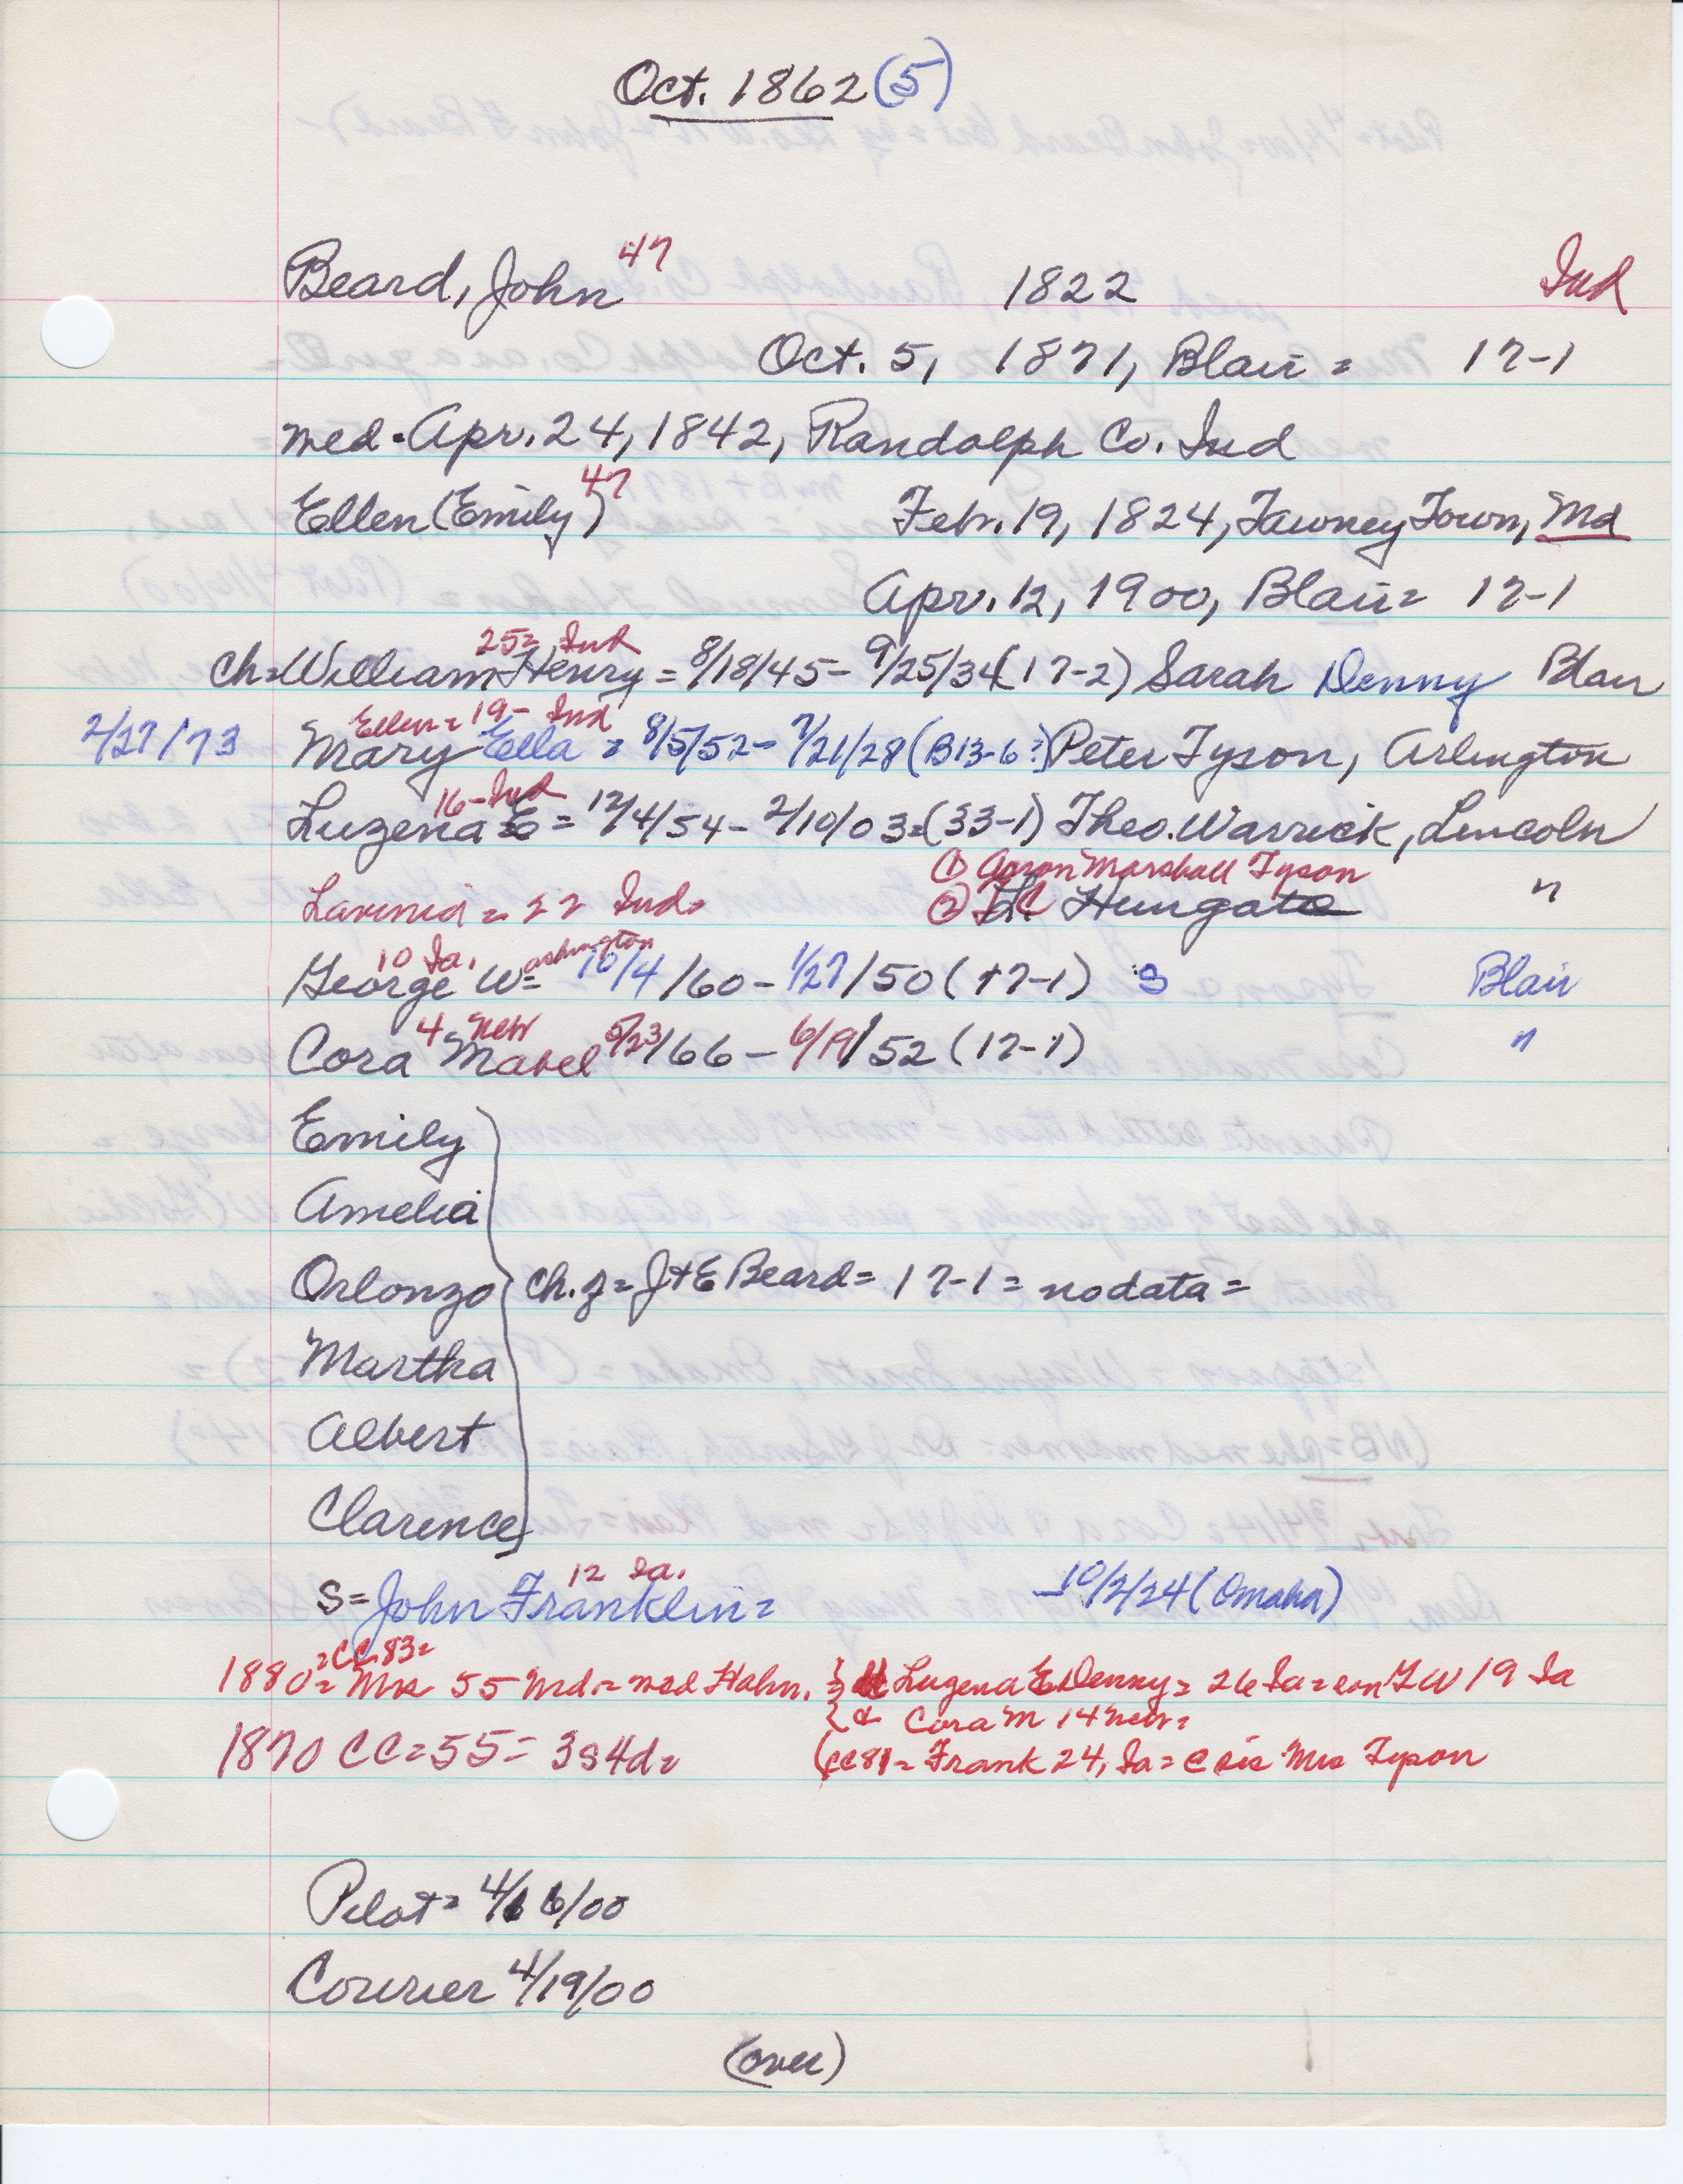 Oct. 1862 (5)
Beard, John 47 1822 Ind
Oct. 5, 1871, Blair = 17-1
med - Apr. 24, 1842, Randolph Co. Ind
Ellen (Emily) 47 Febr. 19, 1824, Tawney Town, Md
Apr. 12, 1900, Blair = 17-1
25 = Ind
ch = William Henry = 8/18/45 - 9/25/34 (17-2) Sarah Denny Blair
Ellen = 19 - Ind
2/27/73 Mary Ella = 8/5/52 - 7/21/28 (B13-6 :) Peter Tyson, Arlington
16 - Ind
Luzena E = 12/4/54 - 2/10/03 = (33-1) Theo. Warrick, Lincoln
① Aaron Marshall Tyson
Lavinia = 22 Ind = ② LC Hungate "
10 Ia. ashington
George W = 10/4/60 - 1/27/50 (17-1) S Blair
4 Neb
Cora Mabel 5/23/66 - 6/19/52 (17-1) "
Emily
Amelia
Orlonzo ch. of = J + E Beard = 17-1 = no data =
Martha
Albert
Clarence
12 Ia.
S = John Franklin = - 10/2/24 (Omaha)
= CC 83 =
1880 = Mrs 55 Md = med Hahn. & Luzena E Denny = 26 Ia = son GW 19 Ia
& Cora M 14 Nebr =
1870 CC = 55 = 3s 4d = (CC81 = Frank 24, Ia = c sis Mrs Tyson
Pilot = 4/16/00
Courier 4/19/00
(over)